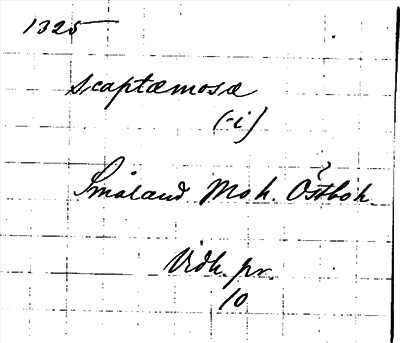 1325
scaptæmosæ
(-i)
Småland Moh. Östboh.
?
Vidh. pr.
10